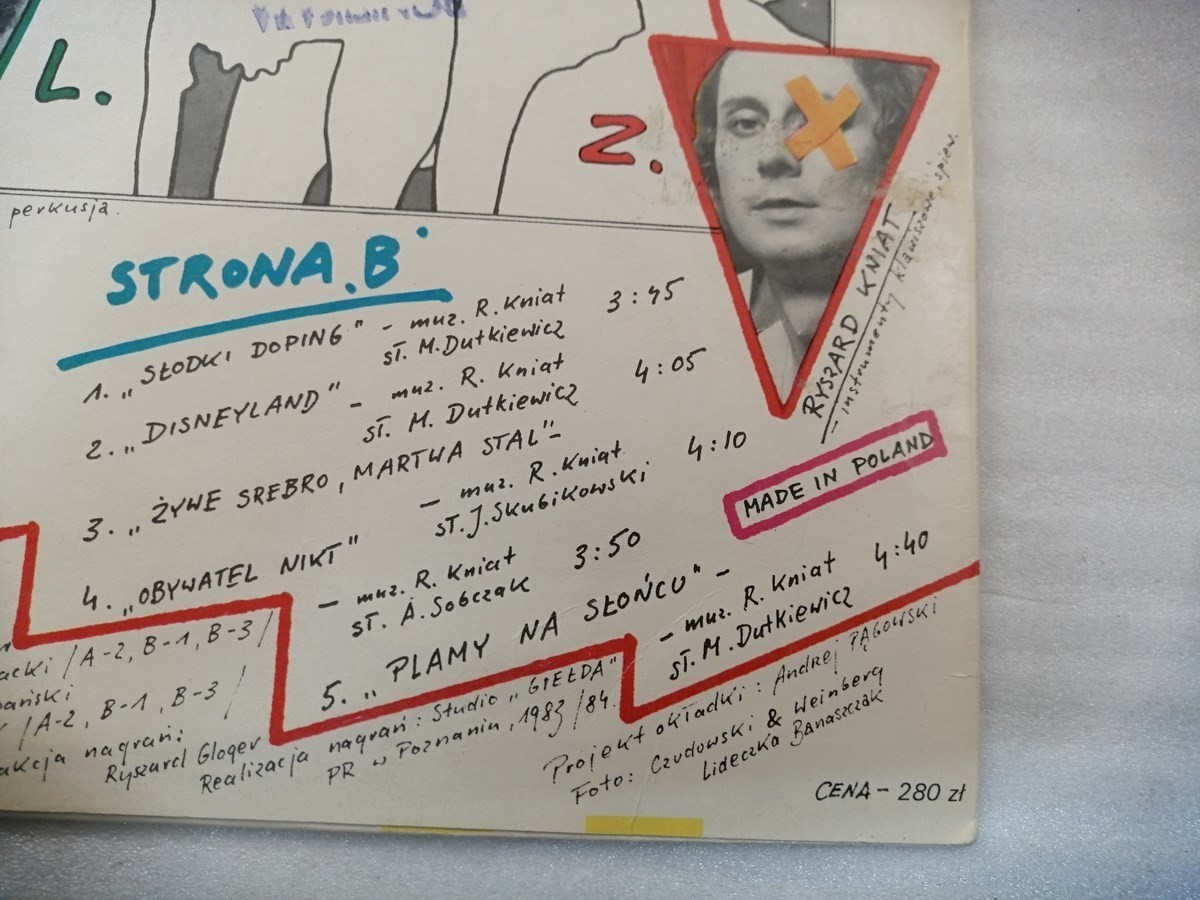 L.
2.
perkusja.
RYSZARD KNIAT
- instrumenty klawiszowe, śpiew.
STRONA B
1. „SŁODKI DOPING" - muz. R. Kniat 3:45
sł. M. Dutkiewicz
2. „DISNEYLAND" - muz. R. Kniat 4:05
sł. M. Dutkiewicz
3. „ŻYWE SREBRO, MARTWA STAL" -
- muz. R. Kniat 4:10
sł. J. Skubikowski
4. „OBYWATEL NIKT" - muz. R. Kniat 3:50
sł. A. Sobczak
5. „PLAMY NA SŁOŃCU" - - muz. R. Kniat 4:40
sł. M. Dutkiewicz
MADE IN POLAND
acki /A-2, B-1, B-3/
pański
/A-2, B-1, B-3/
akcja nagrań:
Ryszard Gloger
Realizacja nagrań: Studio „GIEŁDA"
PR w Poznaniu, 1983/84.
Projekt okładki: Andrzej PĄGOWSKI
Foto: Czudowski & Weinberg
Lideczka BANASZCZAK
CENA - 280 zł